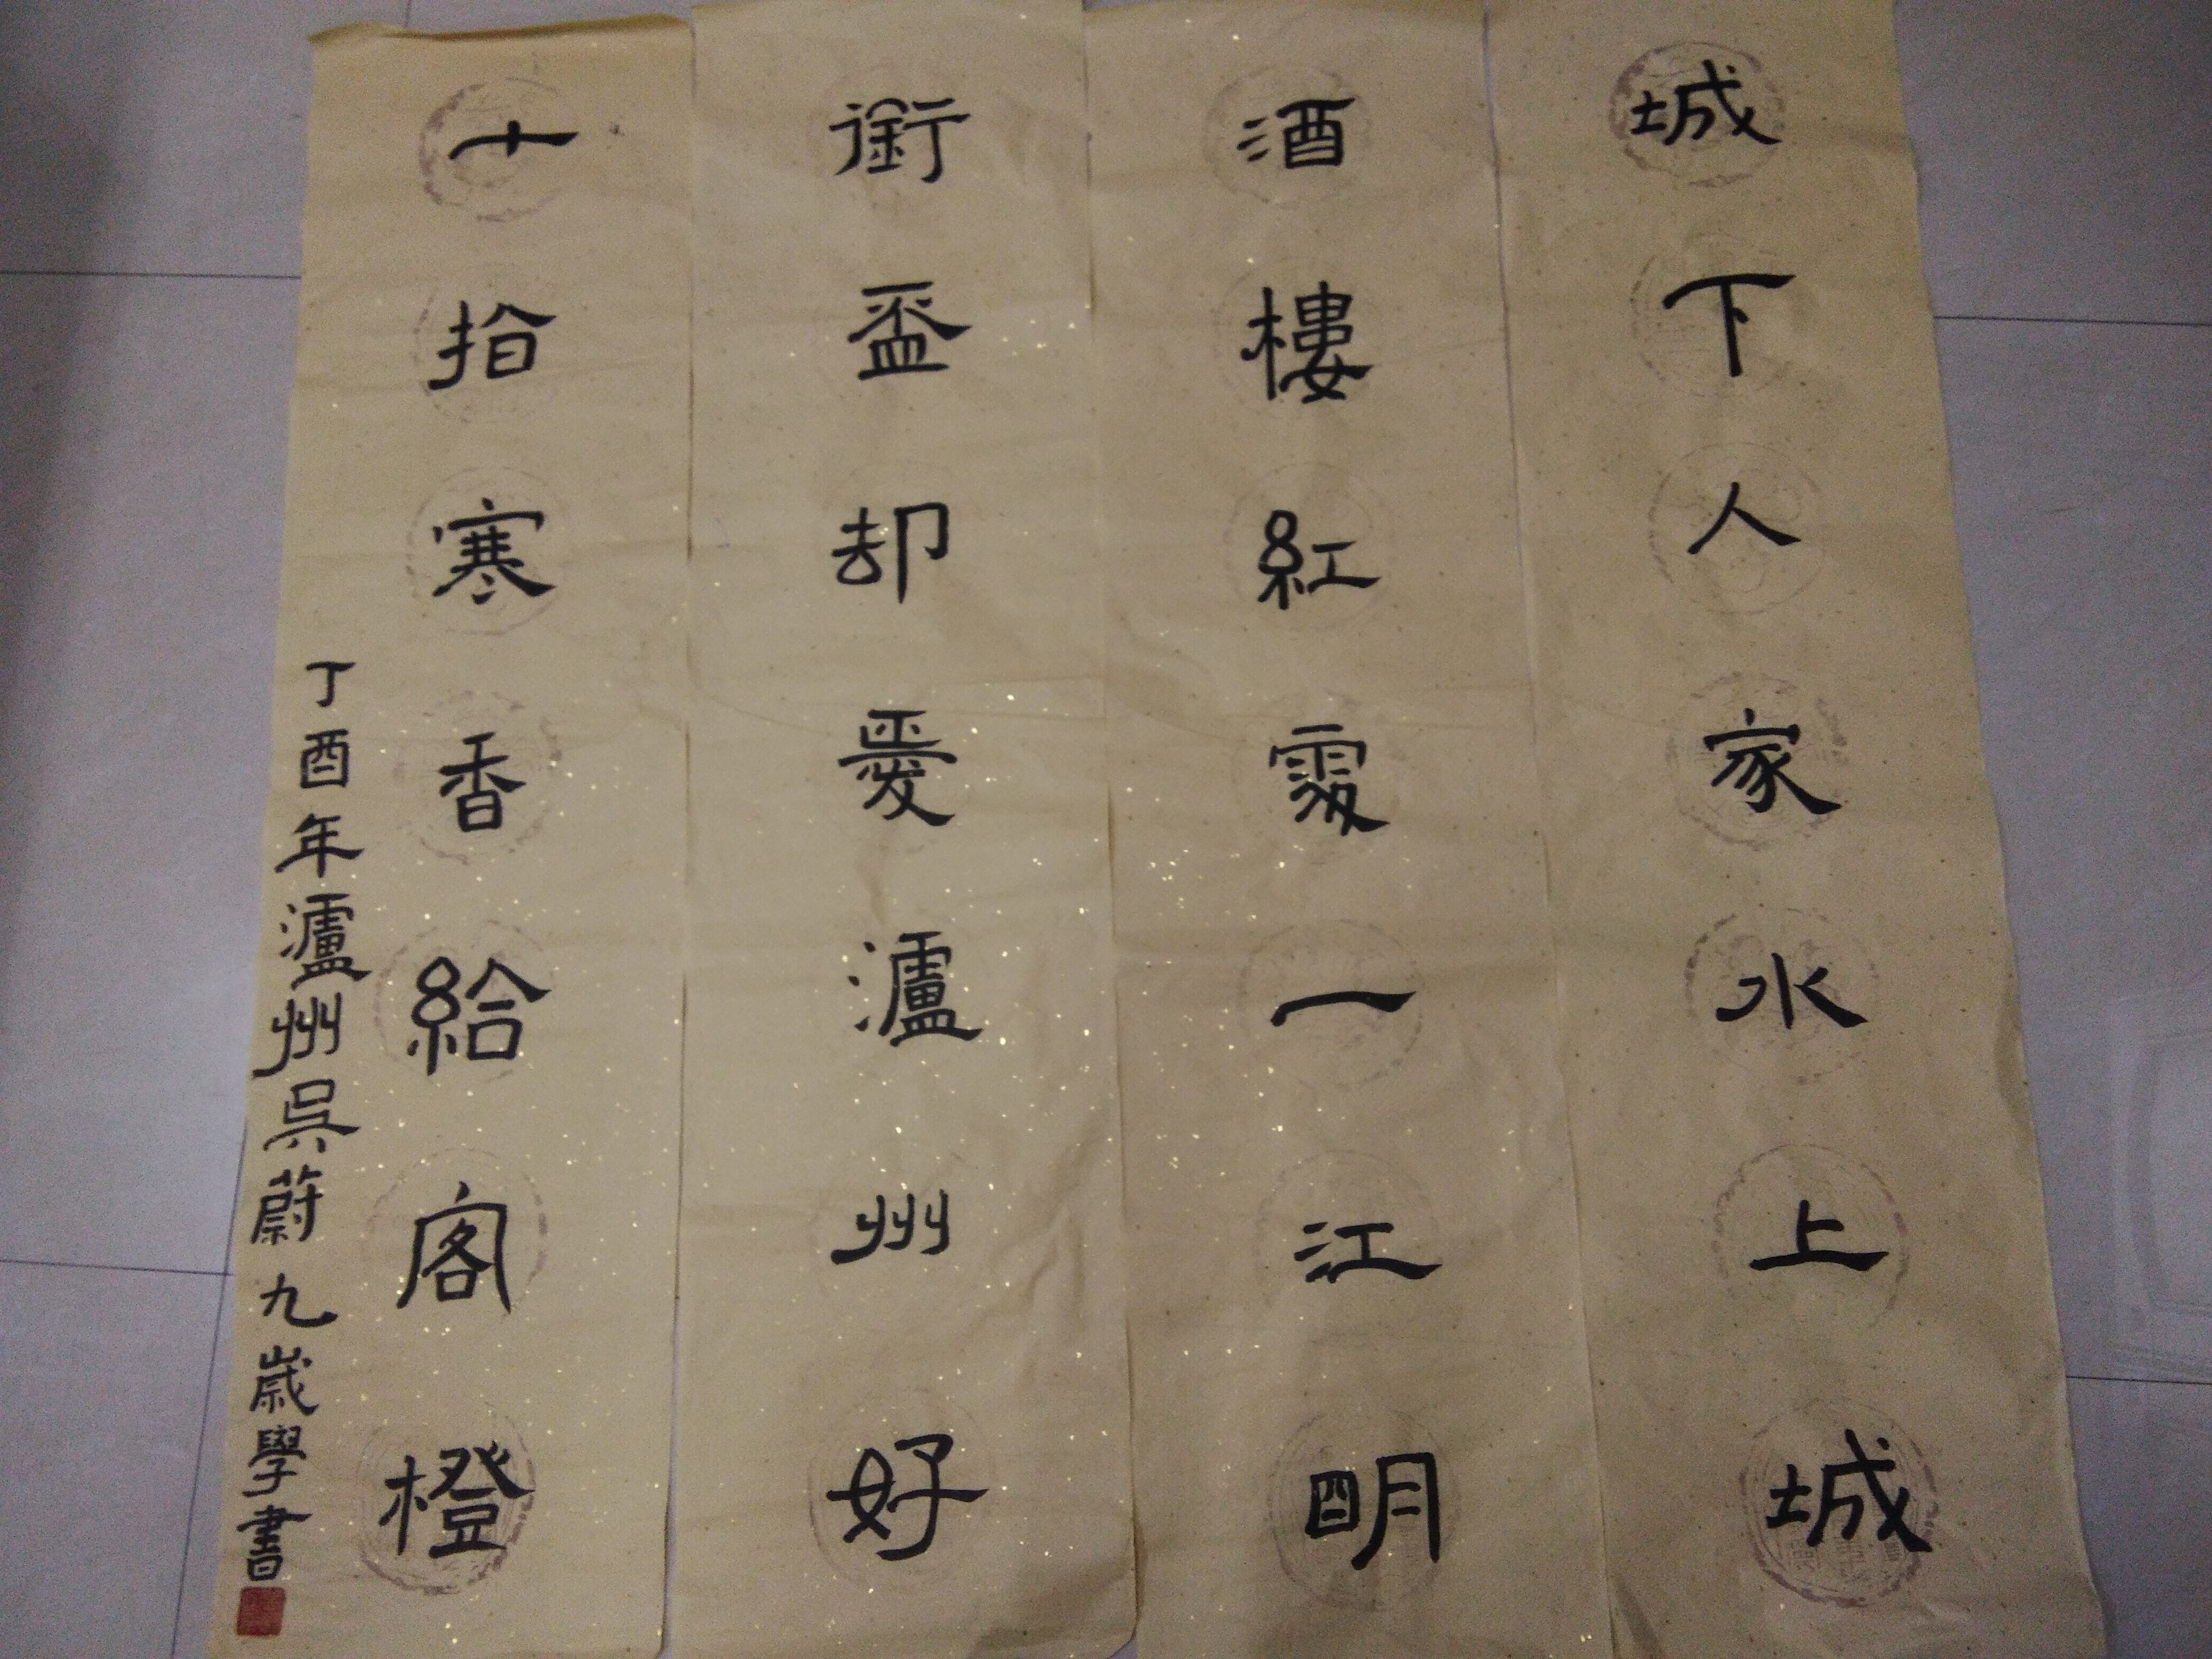 城下人家水上城
酒樓紅處一江明
銜盃却愛瀘州好
十指寒香給客橙
丁酉年瀘州吳蔚九歲學書